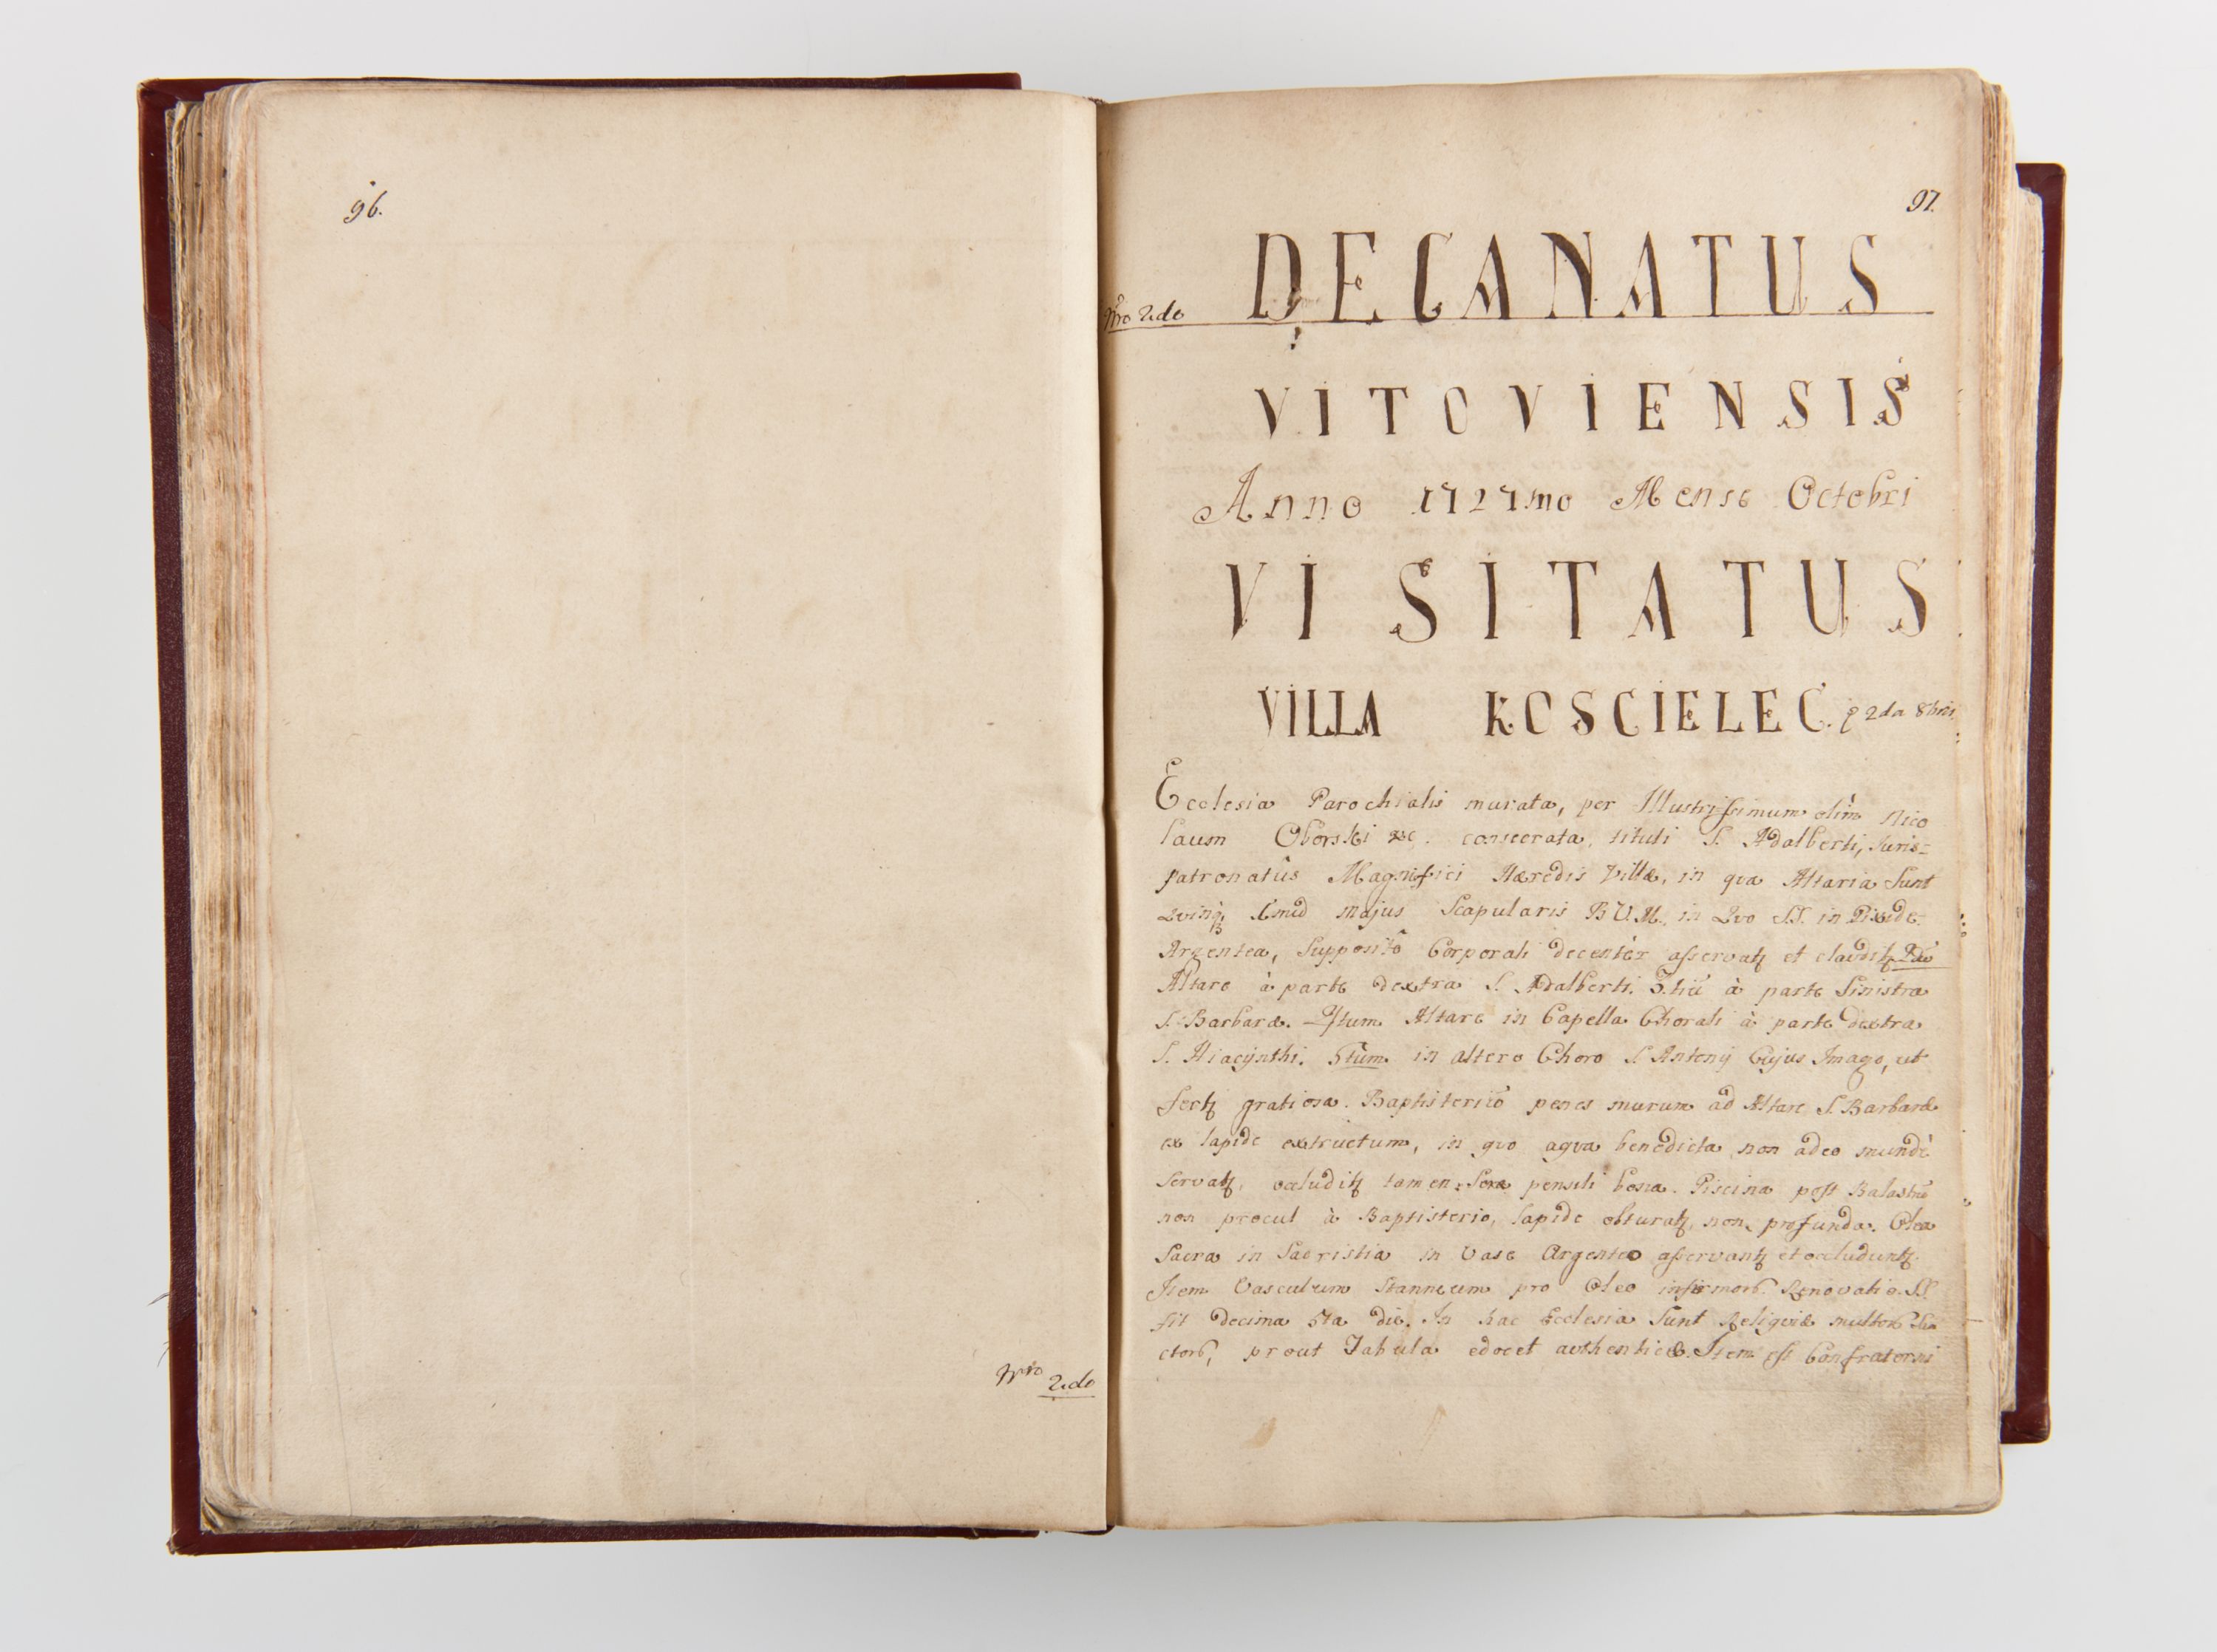 96.
Nro 2do
97.
Nro 2do DECANATUS
VITOVIENSIS
Anno 1727mo Mense Octobri
VISITATUS
VILLA KOSCIELEC. 2da 8bris
Ecclesia Parochialis murata, per Illustrissimum olim Nico
laum Oborski &c. consecrata, tituli S. Adalberti, Juris=
patronatûs Magnifici Hæredis Villæ, in qva Altaria Sunt
Qvinq; majus Scapularis B.V.M. in Qvo SS. in Pixide
Argentea, Supposito Corporali decentèr asservatꝶ et clauditꝶ 2dū
Altare à parte dextra S. Adalberti. 3.tiū à parte Sinistra
S. Barbaræ. 4tum Altare in Capella Chorali à parte dextra
S. Hiacÿnthi. 5tum in altero Choro S. Antonij Cujus Imago, ut
fertꝶ gratiosa. Baptisteriū penes murum ad Altare S. Barbaræ
ex lapide extructum, in qvo aqva benedicta non adeo mundè
servatꝶ, occluditꝶ tamen Sera pensili bona. Piscina post Balastrū
non procul à Baptisterio, lapide obturatꝶ, non profunda. Olea
Sacra in Sacristia in Vase Argenteo asservantꝶ et occluduntꝶ.
Item Vasculum Stanneum pro Oleo infirmorū. Renovatio SS.
fit decima 5ta die. In hac Ecclesia Sunt Reliqviæ multorū San
ctorū, prout Tabula edocet avthenticæ. Item est Confraterni